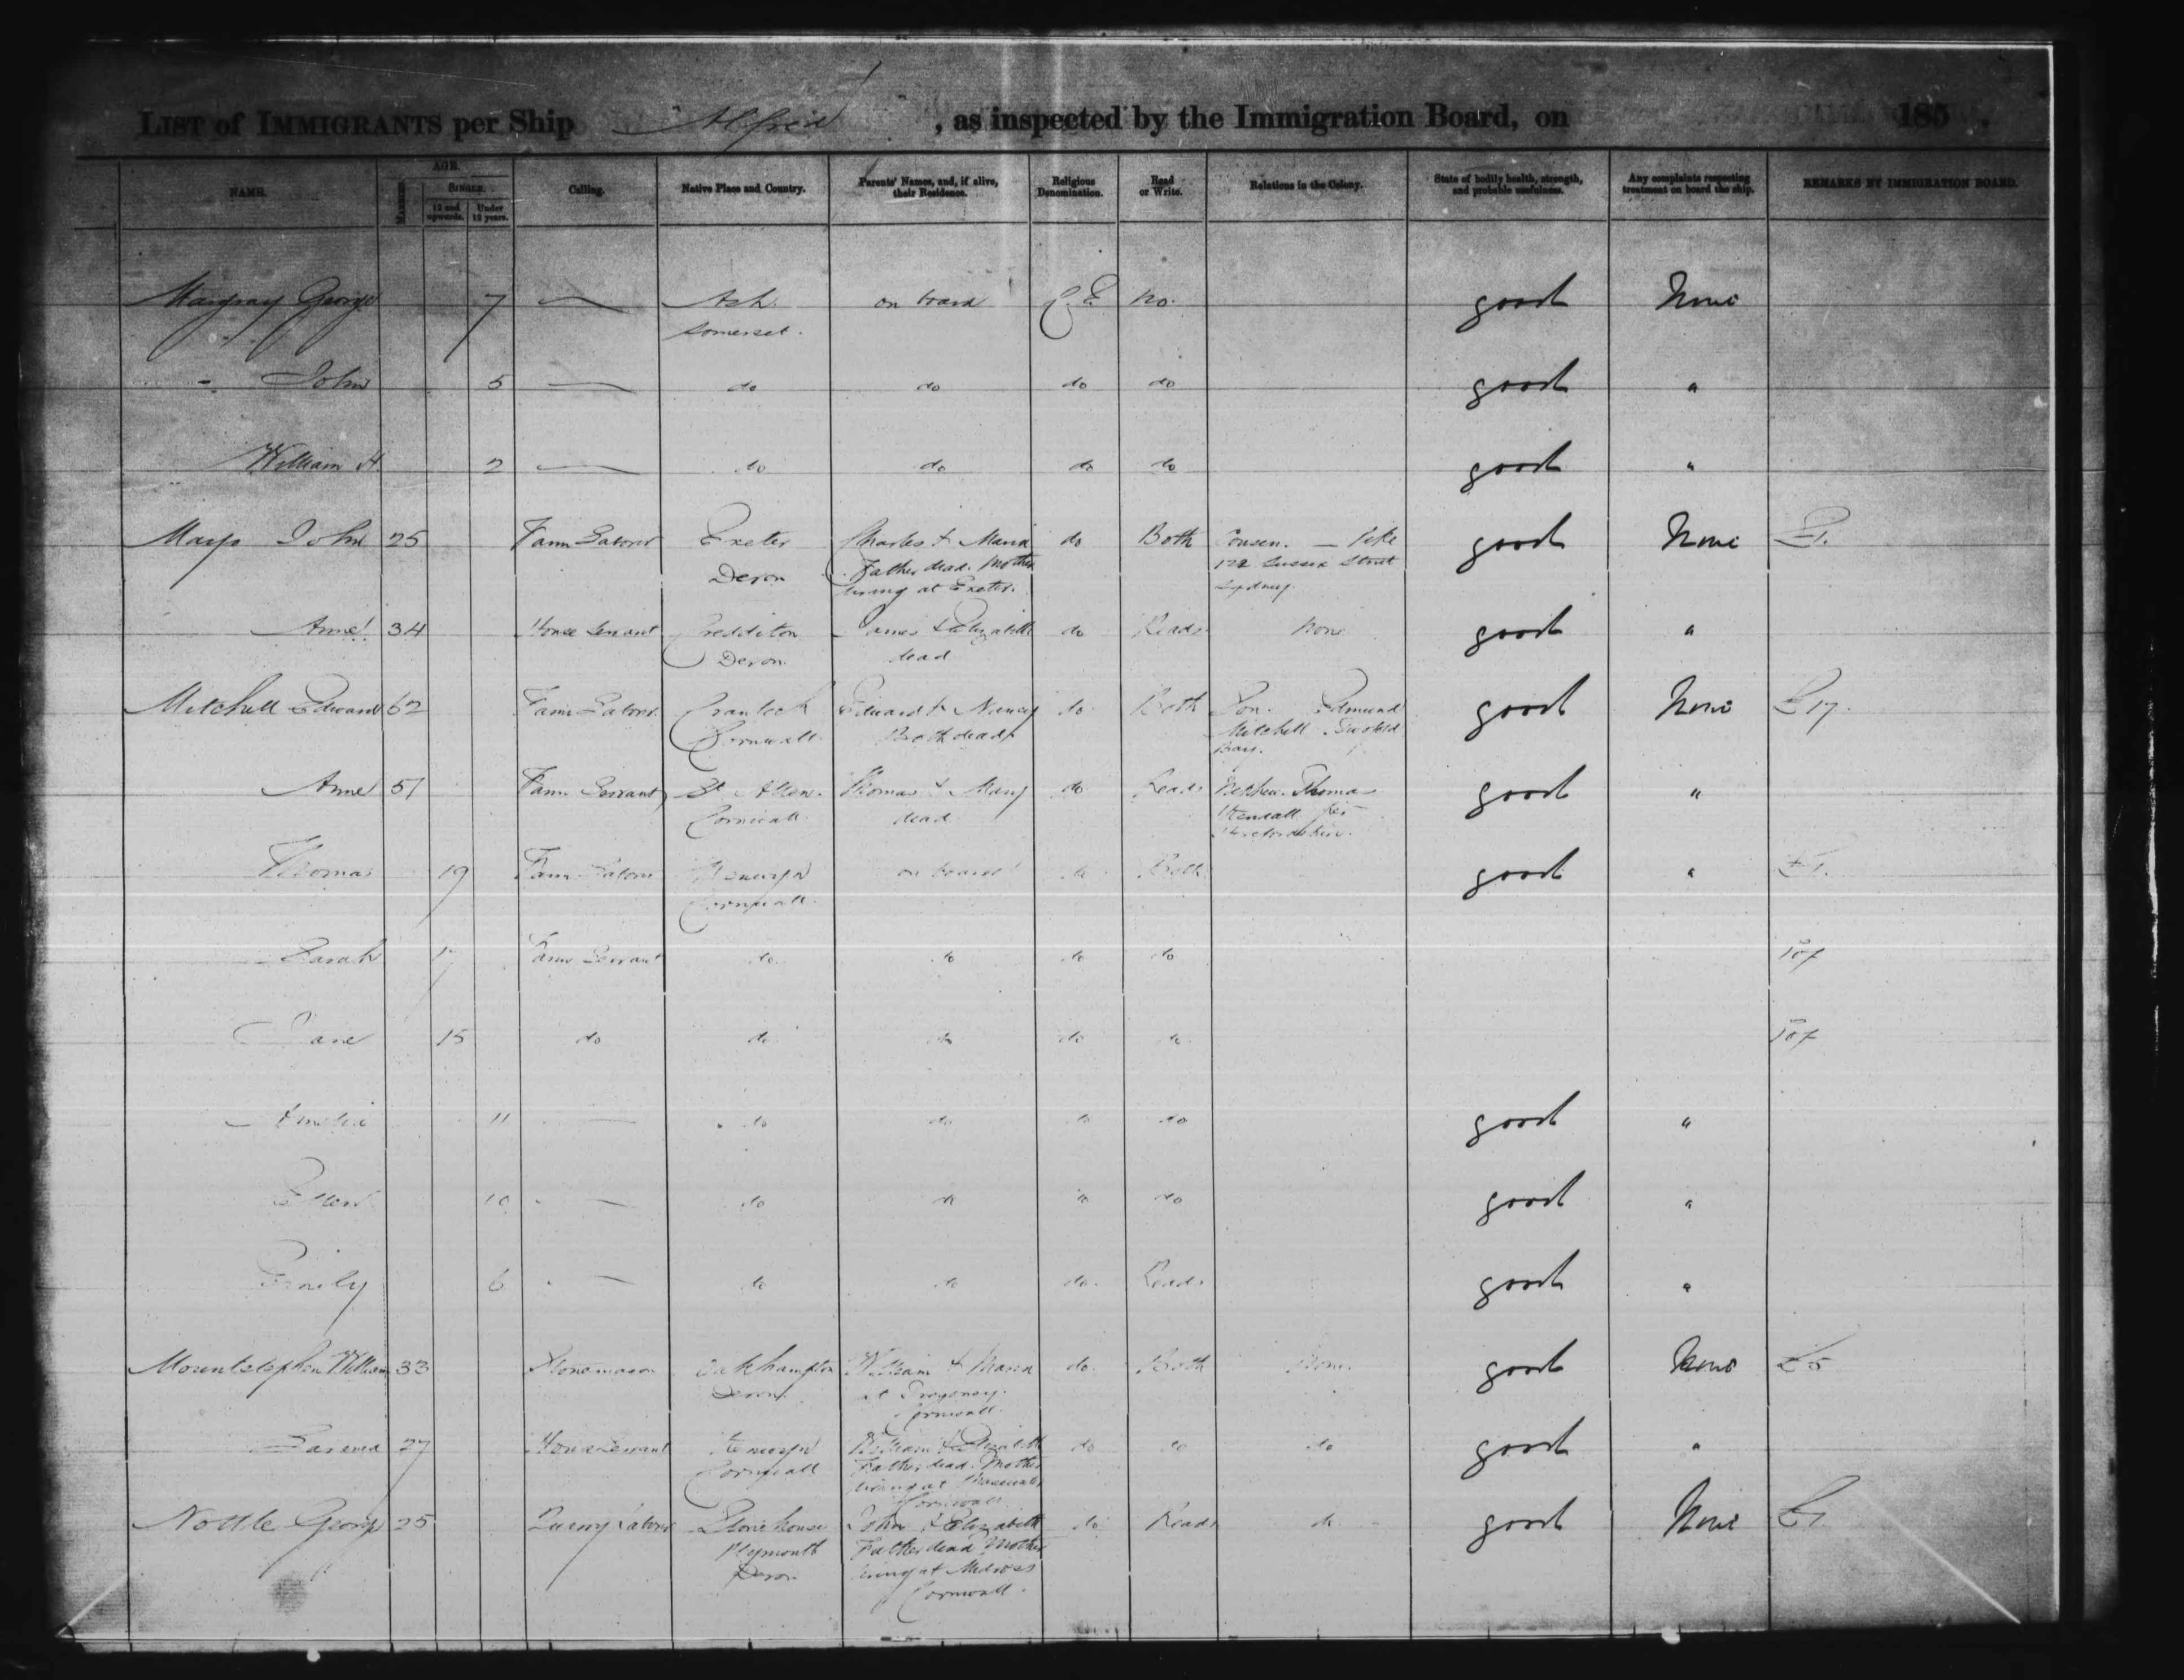 LIST of IMMIGRANTS per Ship Alfred, as inspected by the Immigration Board, on 185 .
NAME. AGE. Calling. Native Place and Country. Parents' Names, and, if alive, their Residence. Religious Denomination. Read or Write. Relations in the Colony. State of bodily health, strength, and probable usefulness. Any complaints respecting treatment on board the ship. REMARKS BY IMMIGRATION BOARD.
MARRIED. SINGLE.
12 and upwards. Under 12 years.
George 7 — Ash on board C.E. no. good None
Somerset.
" John 5 — do do do do good "
William H 2 — do do do do good "
Mayo John 25 Farm Laborer Exeter Charles & Maria do Both Cousin. — Pike good None £1.
Devon Father dead. Mother 122 Sussex Street
living at Exeter. Sydney.
Anne 34 House Servant Crediton James & Elizabeth do Reads None good "
Devon. dead
Mitchell Edward 62 Farm Laborer Crantock Edward & Nancy do Both Son. Edmund good None £17.
Cornwall. Both dead Mitchell Twofold
Bay.
Anne 51 Farm Servant St Allen. Thomas & Mary do Reads Nephew. Thomas good "
Cornwall. dead Kendall
Thomas 19 Farm Laborer Kenwyn on board do Both good " £1.
Cornwall.
Sarah 17 Farm Servant do do do do
Jane 15 do do do do do
Amelia 11 — do do do do good "
Ellen 10 — do do do do good "
Emily 6 — do do do. Reads good "
Mountstephen William 33 Stonemason Oakhampton William & Maria do. Both None. good None £5
Devon. at
Cornwall.
27 House Servant Kenwyn William & Elizabeth do do do good "
Cornwall Father dead. Mother
living at
Cornwall.
Nottle George 25 Laborer Stonehouse John & Elizabeth do Reads do good None £1.
Plymouth Father dead Mother
Devon living at
Cornwall.